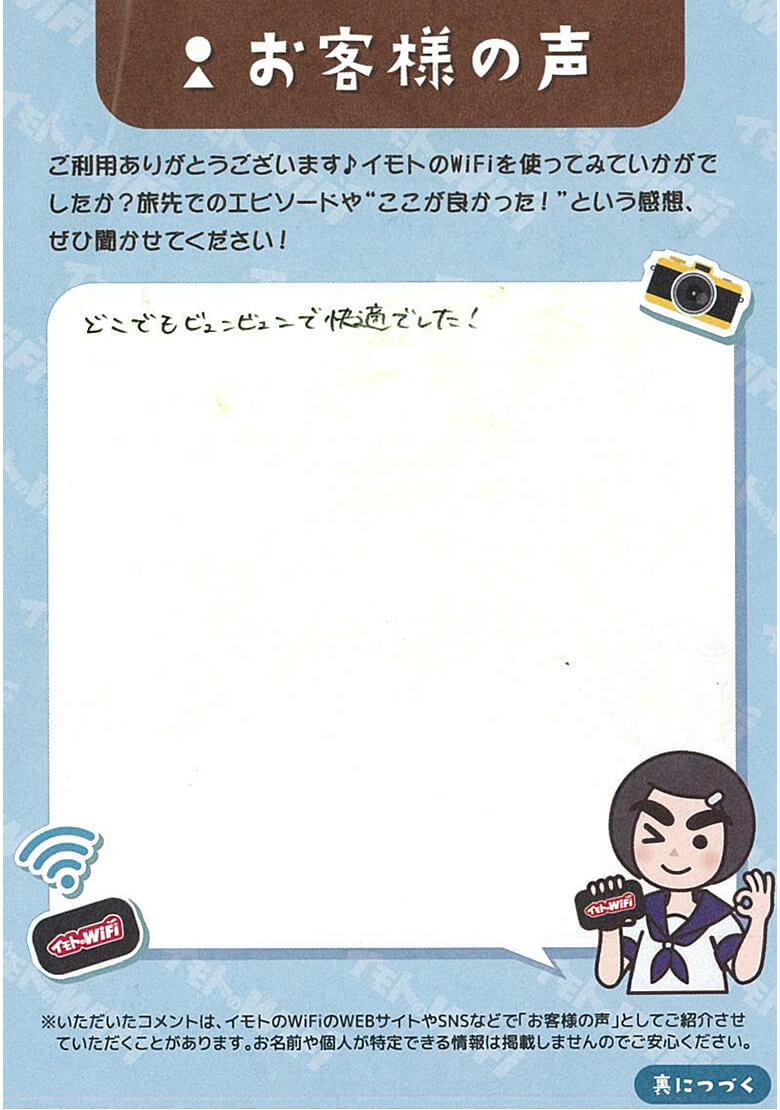 お客様の声
ご利用ありがとうございます♪イモトのWiFiを使ってみていかがで
したか？旅先でのエピソードや“ここが良かった！”という感想、
ぜひ聞かせてください！
どこでもビュンビュンで快適でした！
イモトのWiFi
イモトのWiFi
※いただいたコメントは、イモトのWiFiのWEBサイトやSNSなどで「お客様の声」としてご紹介させ
ていただくことがあります。お名前や個人が特定できる情報は掲載しませんのでご安心ください。
裏につづく